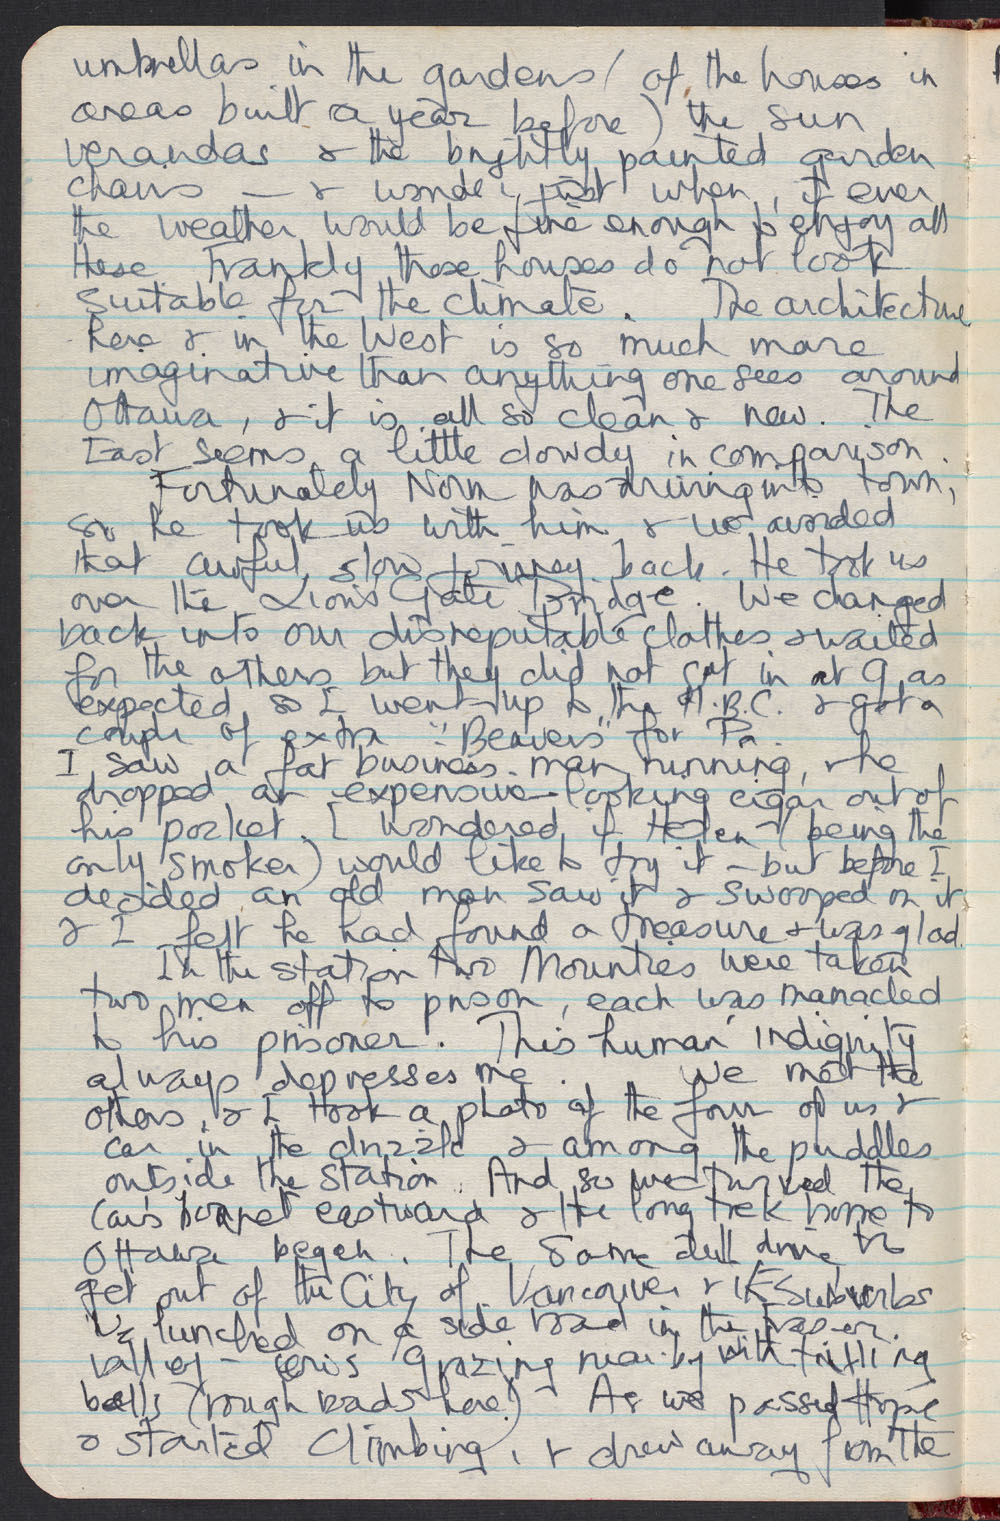 umbrellas in the gardens (of the houses in
areas built a year before) the sun
verandas & the brightly painted garden
chairs — & wonder, just when, if ever
the weather would be fine enough to enjoy all
these. Frankly those houses do not look
suitable for the climate. The architecture
here & in the West is so much more
imaginative than anything one sees around
Ottawa, & it is all so clean & new. The
East seems a little dowdy in comparison.
Fortunately Norm was driving into town,
so he took us with him & we avoided
that awful, slow journey back. He took us
over the Lions Gate Bridge. We changed
back into our disreputable clothes & waited
for the others but they did not get in at 9 as
expected, so I went up to the H.B.C. & got a
couple of extra "Beavers" for Pa.
I saw a fat business-man running, & he
dropped an expensive-looking cigar out of
his pocket. I wondered if Helen (being the
only smoker) would like to try it – but before I
decided an old man saw it & swooped on it
& I felt he had found a treasure & was glad.
In the station two Mounties were taken
two men off to prison, each was manacled
to his prisoner. This human indignity
always depresses me. We met the
others, & I took a photo of the four of us &
car in the drizzle & among the puddles
outside the station. And so we turned the
car's bonnet eastward & the long trek home to
Ottawa began. The same dull drive to
get out of the City of Vancouver & its suburbs
We lunched on a side road in the Fraser
valley – cows grazing nearby with tinkling
bells (rough roads here!) As we passed Hope
& started climbing, & drew away from the